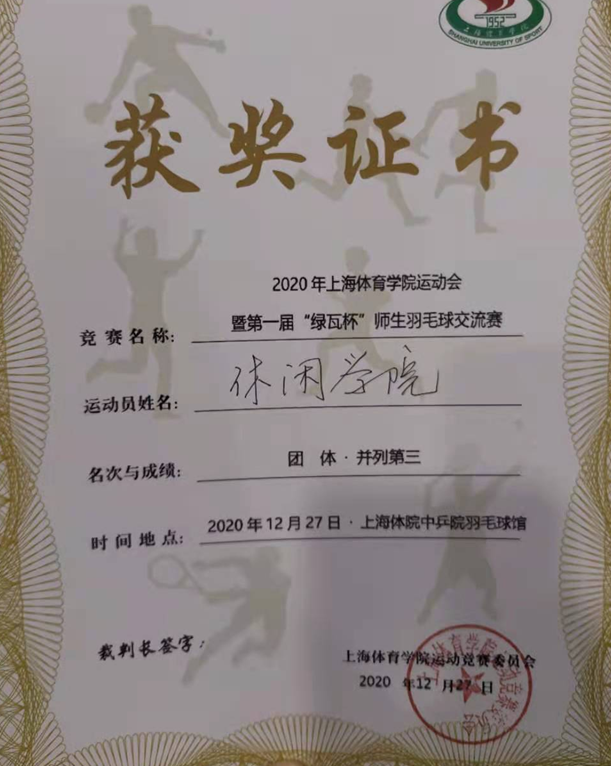 1952
上海体育学院
SHANGHAI UNIVERSITY OF SPORT
获奖证书
2020年上海体育学院运动会
竞赛名称: 暨第一届“绿瓦杯”师生羽毛球交流赛
运动员姓名: 休闲学院
名次与成绩: 团 体·并列第三
时间地点: 2020年12月27日·上海体院中乒院羽毛球馆
裁判长签字:
上海体育学院运动竞赛委员会
2020 年12 月27 日
上海体育学院运动竞赛委员会